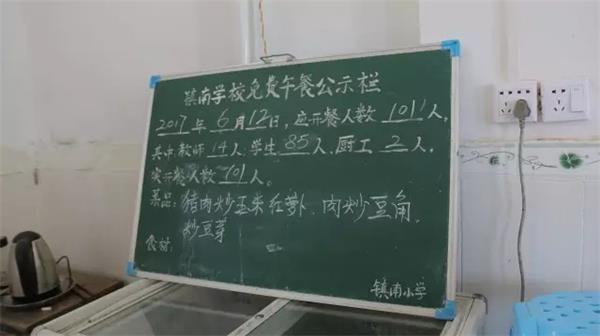 镇南学校免费午餐公示栏
2017年6月12日,应开餐人数101人,
其中:教师14人,学生85人,厨工2人,
实开餐人数101人。
菜品:猪肉炒玉米红萝卜、肉炒豆角、
炒豆芽
食材:
镇南小学